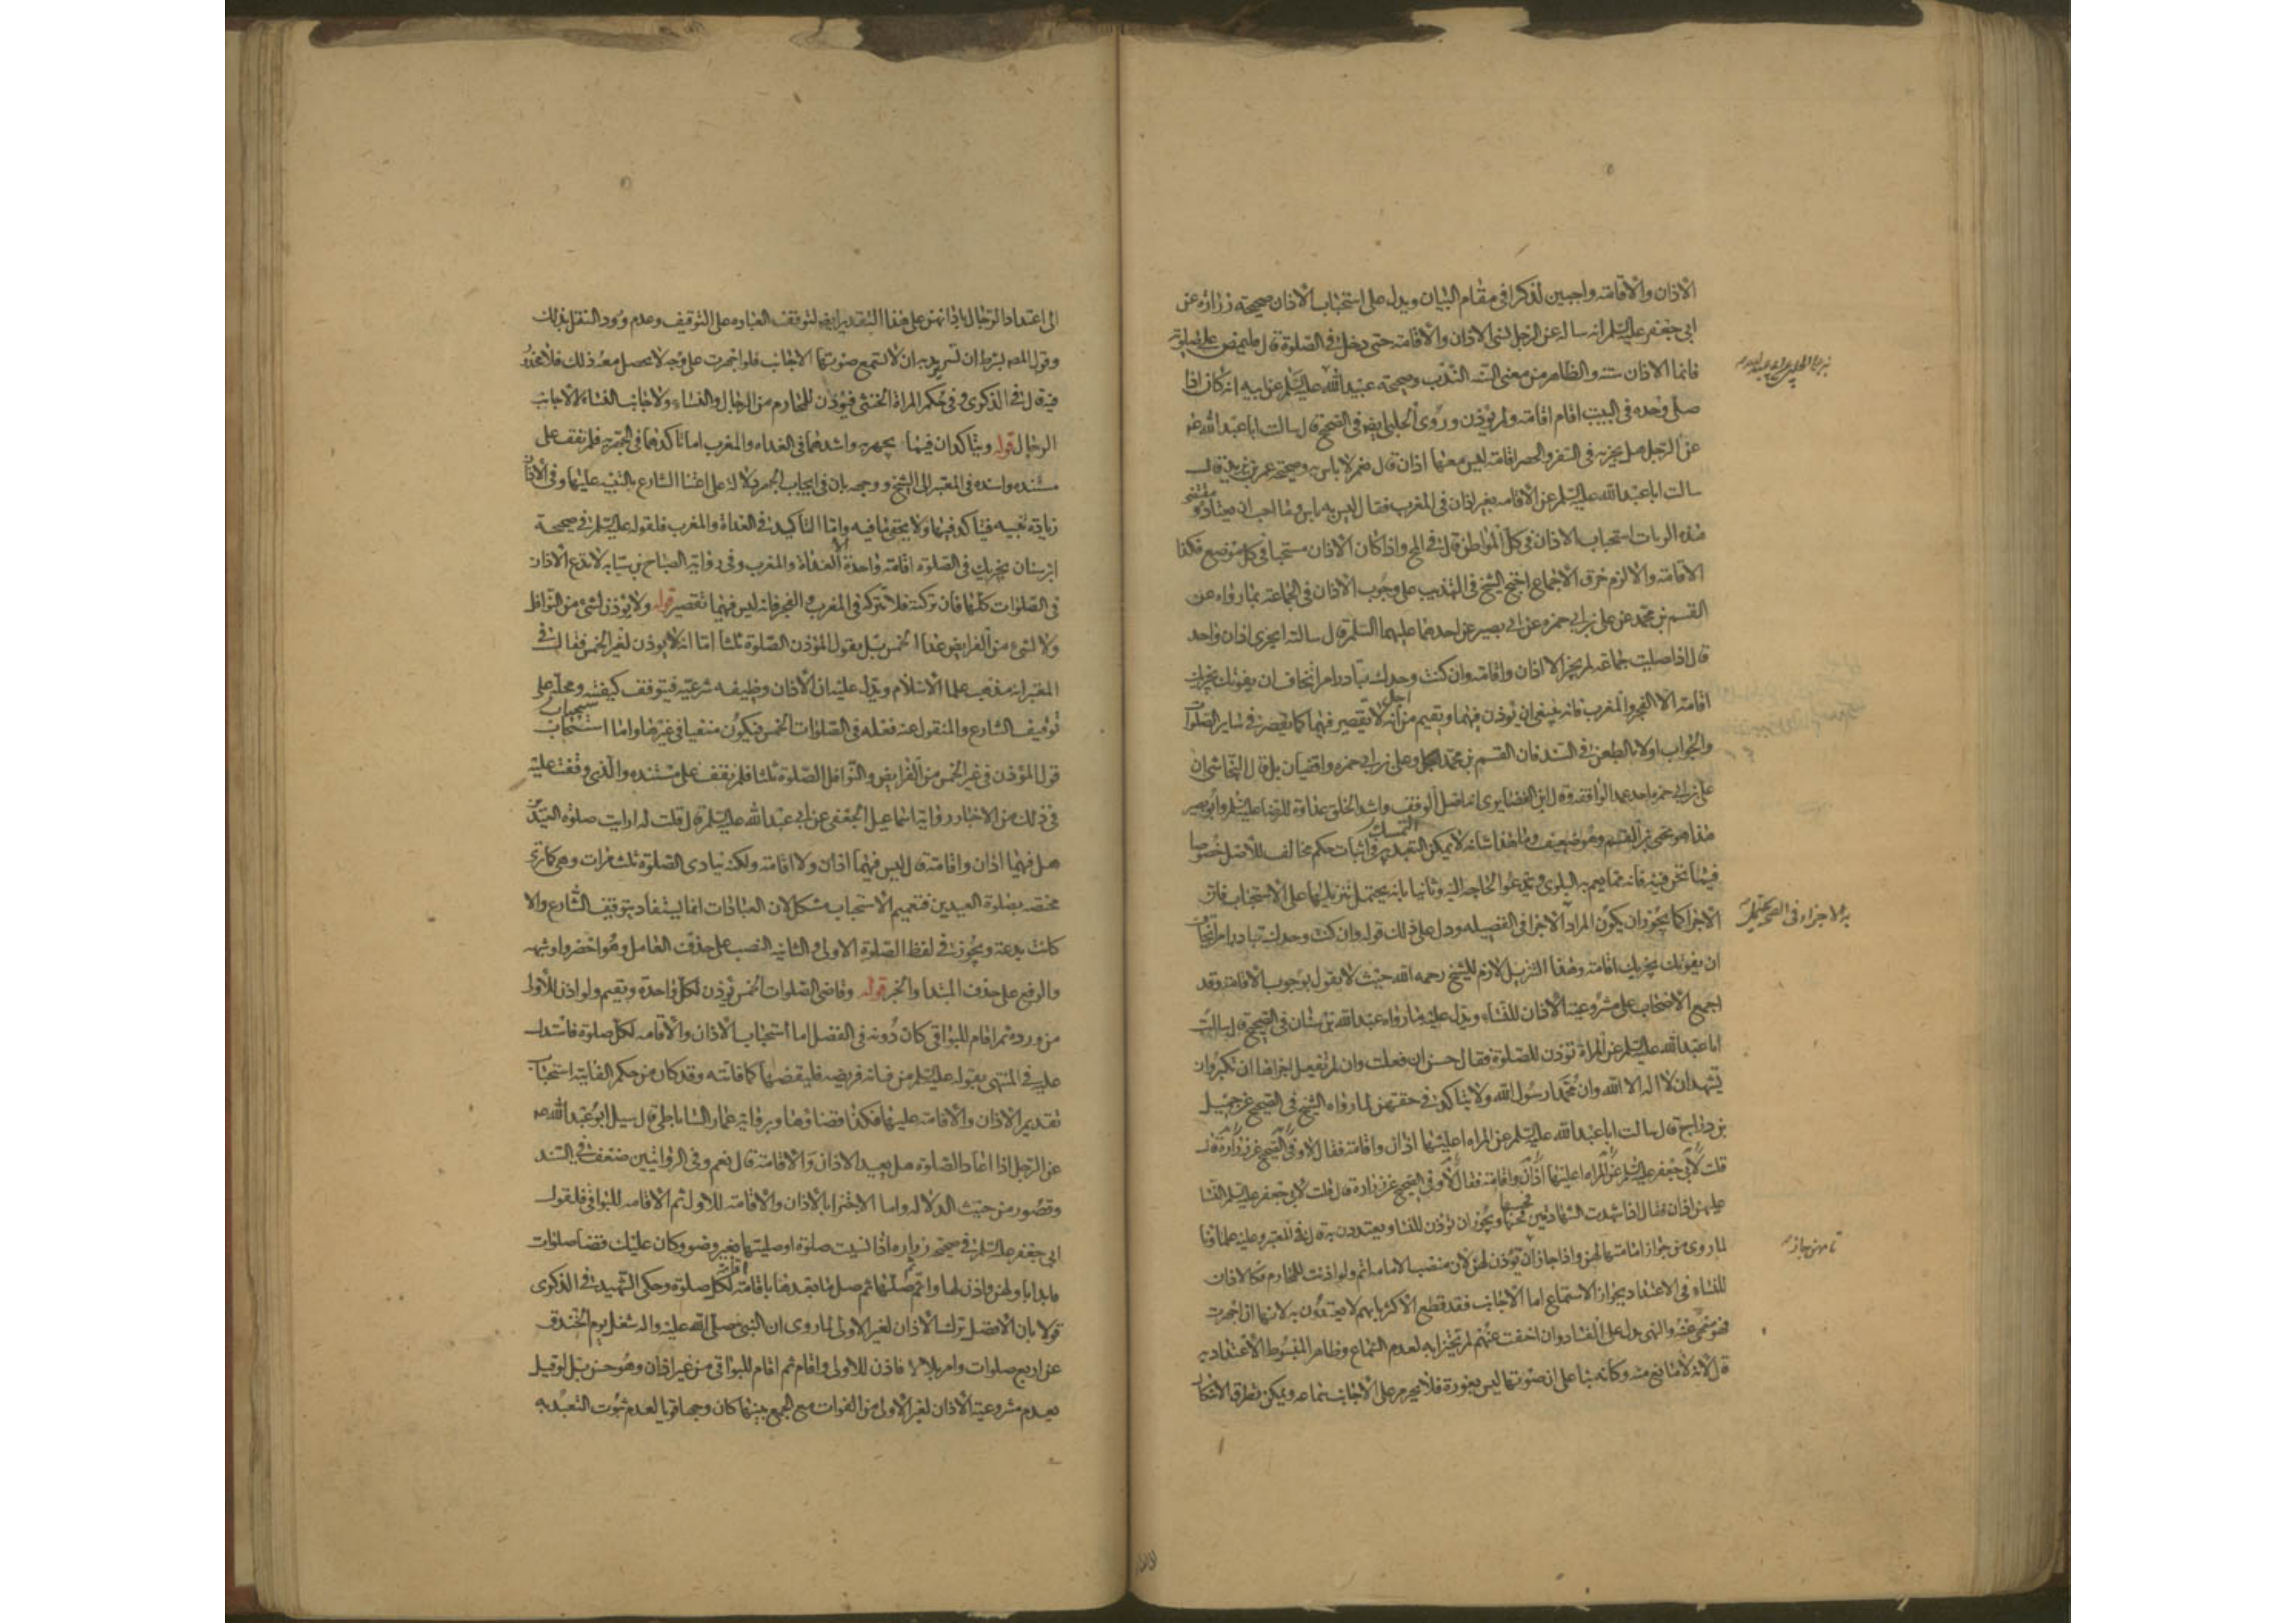 الاذان والاقامة واجبين لذكرا في مقام البيان ويدل على استحباب الاذان صحيحة زرارة عن
ابي جعفر عليه السلم انه ساله عن الرجل نسي الاذان والاقامة حتى دخل في الصلوة قال فليمض على صلوته
فانما الاذان سنة والظاهر من معنى السنة الندب وصحيحة عبيد الله عليه السلم عن ابيه انه كان اذا
صلى وحده في البيت اقام اقامة ولم يؤذن وروى الحلبي ايضا في الصحيح قال سالت ابا عبد الله عم
عن الرجل هل يجزيه في السفر والحضر اقامة ليس معها اذان قال نعم لا باس به وصحيحة عمر بن يزيد قال
سالت ابا عبد الله عليه السلم عن الاقامة بغير اذان في المغرب فقال ليس به باس وما احب ان يعتاد و
هذه الروايات استحباب الاذان في كل المواطن قال في المخ واذا كان الاذان مستحبا في كل موضع فكذا
الاقامة والا لزم خرق الاجماع احتج الشيخ في التهذيب على وجوب الاذان في الجماعة بما رواه عن
القسم بن محمد عن علي بن ابي حمزه عن ابي بصير عن احدهما عليهما السلم قال سالته ايجزي اذان واحد
قال اذا صليت جماعة لم يجز الا اذان واقامة وان كنت وحدك تبادر امرا تخاف ان يفوتك يجزيك
اقامة الا الفجر والمغرب فانه ينبغي ان يؤذن فيهما ويقيم من اجل انه لا تقصير فيهما كما تقصر في ساير الصلوات
والجواب اولا بالطعن في السند فان القسم بن محمد وعلي بن ابي حمزه واقفيان بل قال النجاشي ان
علي بن ابي حمزه احد عمد الواقفة وقال ابن الغضايري انه اصل الوقف واشد الخلق عداوة للرضا عليه السلم وابو بصير
هذا هو يحيى بن القسم وهو ضعيف وما هذا شانه لا يمكن التمسك به في اثبات حكم مخالف للاصل خصوصا
فيما نحن فيه فانه مما يعم به البلوى وتدعو الحاجة اليه وثانيا بانه يحتمل تنزيلها على الاستحباب فان
الاجزا كما يجوز ان يكون المراد الاجزا في الفضيلة ودل على ذلك قوله وان كنت وحدك تبادر امرا تخاف
ان يفوتك يجزيك اقامة وهذا التنزيل لازم للشيخ رحمه الله حيث لا يقول بوجوب الاقامة وقد
اجمع الاصحاب على مشروعية الاذان للنساء ويدل عليه ما رواه عبد الله بن سنان في الصحيح قال سالت
ابا عبد الله عليه السلم عن المراة تؤذن للصلوة فقال حسن ان فعلت وان لم تفعل اجزاها ان تكبر وان
تشهد ان لا اله الا الله وان محمدا رسول الله ولا يتاكد في حقهن لما رواه الشيخ في الصحيح عن جميل
بن دراج قال سالت ابا عبد الله عليه السلم عن المراة اعليها اذان واقامة فقال لا وفي الصحيح عن زرارة قال
قلت لابي جعفر عليه السلم عن المراة اعليها اذان واقامة فقال لا وفي الصحيح عن زرارة قال قلت لابي جعفر عليه السلم النسا
عليهن اذان فقال اذا شهدت الشهادتين فحسبها ويجوز ان تؤذن للنسا ويعتددن به قال في المعتبر وعليه علماؤنا
لما روي من جواز امامتها لهن واذا جاز ان تؤذن لهن لان منصب الامامة اتم ولو اذنت للمحارم فكالاذان
للنساء في الاعتداد بجواز الاستماع اما الاجانب فقد قطع الاكثر بانهم لا يعتدون به لانها ان اجهرت
فهو منهي عنه والنهي يدل على الفساد وان اخفت عنهم لم يجتزا به لعدم السماع وظاهر المبسوط الاعتداد به
قال لانه لا مانع منه وكانه بنا على ان صوتها ليس بعورة فلا يحرم على الاجانب سماعه ويمكن تطرق الاشكال
الى اعتداد الرجال باذانهن على هذا التقدير ايضا لتوقف العبادة على التوقيف وعدم ورود النقل بذلك
وقول المصه بشرط ان تسر به ان لا تسمع صوتها الاجانب فلو اجهرت على وجه لا يحصل معه ذلك فلا محذور
فيه قال في الذكرى وفي حكم المراة الخنثى فيؤذن للمحارم من الرجال والنساء ولاجانب النساء لا لاجانب
الرجال قوله ويتاكدان فيما يجهر به واشدهما في الغداه والمغرب اما تاكدهما في الجهرية فلم نقف على
مستنده واسنده في المعتبر الى الشيخ ووجهه بان في ايجاب الجهر دلالة على اعتنا الشارع بالتنبيه عليها وفي الاذان
زيادة تنبيه فيتاكد فيها ولا يخفى ما فيه واما التاكيد في الغداة والمغرب فلقوله عليه السلم في صحيحة
ابن سنان يجزيك في الصلوة اقامة واحدة الا الغداة والمغرب وفي رواية الصباح بن سيابه لا تدع الاذان
في الصلوات كلها فان تركته فلا تتركه في المغرب والفجر فانه ليس فيهما تقصير قوله ولا يؤذن لشيء من النوافل
ولا لشيء من الفرايض عدا الخمس بل يقول المؤذن الصلوة ثلثا اما انه لا يؤذن لغير الخمس فقال في
المعتبر انه مذهب علما الاسلام ويدل عليه ان الاذان وظيفه شرعية فيتوقف كيفيته ومحله على
توقيف الشارع والمنقول عنه فعله في الصلوات الخمس فيكون منفيا في غيرها واما استحباب
قول المؤذن في غير الخمس من الفرايض والنوافل الصلوة ثلثا فلم نقف على مستنده والذي وقفت عليه
في ذلك من الاخبار رواية اسماعيل الجعفي عن ابي عبد الله عليه السلم قال قلت له ارايت صلوة العيدين
هل فيهما اذان واقامة قال ليس فيهما اذان ولا اقامة ولكنه ينادى الصلوة ثلث مرات وهي كما ترى
مختصه بصلوة العيدين فتعميم الاستحباب مشكل لان العبادات انما يستفاد بتوقيف الشارع والا
كانت بدعة ويجوز في لفظ الصلوة الاولى والثانية النصب على حذف العامل وهو احضروا وشبهه
والرفع على حذف المبتدا والخبر قوله وقاضي الصلوات الخمس يؤذن لكل واحدة ويقيم ولو اذن للاولى
من ورده ثم اقام للبواقي كان دونه في الفضل اما استحباب الاذان والاقامه لكل صلوة فاستدل
عليه في المنتهى بقوله عليه السلم من فاته فريضه فليقضها كما فاتته وقد كان من حكم الفايتة استحباب
تقديم الاذان والاقامة عليها فكذا قضاؤها وبرواية عمار الساباطي قال سيل ابو عبد الله عم
عن الرجل اذا اعاد الصلوة هل يعيد الاذان والاقامة قال نعم وفي الروايتين ضعف في السند
وقصور من حيث الدلاله واما الاجتزا بالاذان والاقامة للاول ثم الاقامه للبواقي فلقول
ابي جعفر عليه السلم في صحيحة زرارة اذا نسيت صلوة او صليتها بغير وضوء وكان عليك قضا صلوات
فابدا باولهن فاذن لها واقم ثم صلها ثم صل ما بعدها باقامة اقامة لكل صلوة وحكى الشهيد في الذكرى
قولا بان الافضل ترك الاذان لغير الاولى لما روى ان النبي صلى الله عليه واله شغل يوم الخندق
عن اربع صلوات وامر بلالا فاذن للاولى واقام ثم اقام للبواقي من غير اذان وهو حسن بل لو قيل
بعدم مشروعية الاذان لغير الاولى من الفوات مع الجمع بينها كان وجها قويا لعدم ثبوت التعبد به